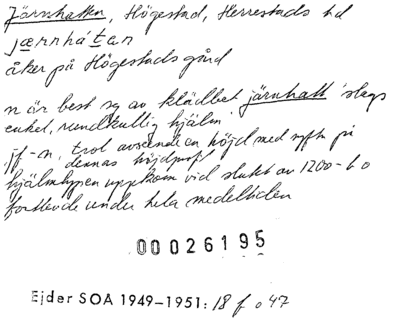 Järnhatten, Högestad, Herrestads hd
jærnhátan
åker på Högestads gård
n är best sg av klädbet järnhatt 'slags
enkel, rundkullig hjälm'.
jf-n. trol avseende en höjd med syft på
dennas höjdprofil
hjälmtypen uppkom vid slutet av 1200-t o
fortlevde under hela medeltiden
00026195
Ejder SOA 1949-1951: 18 f o 47